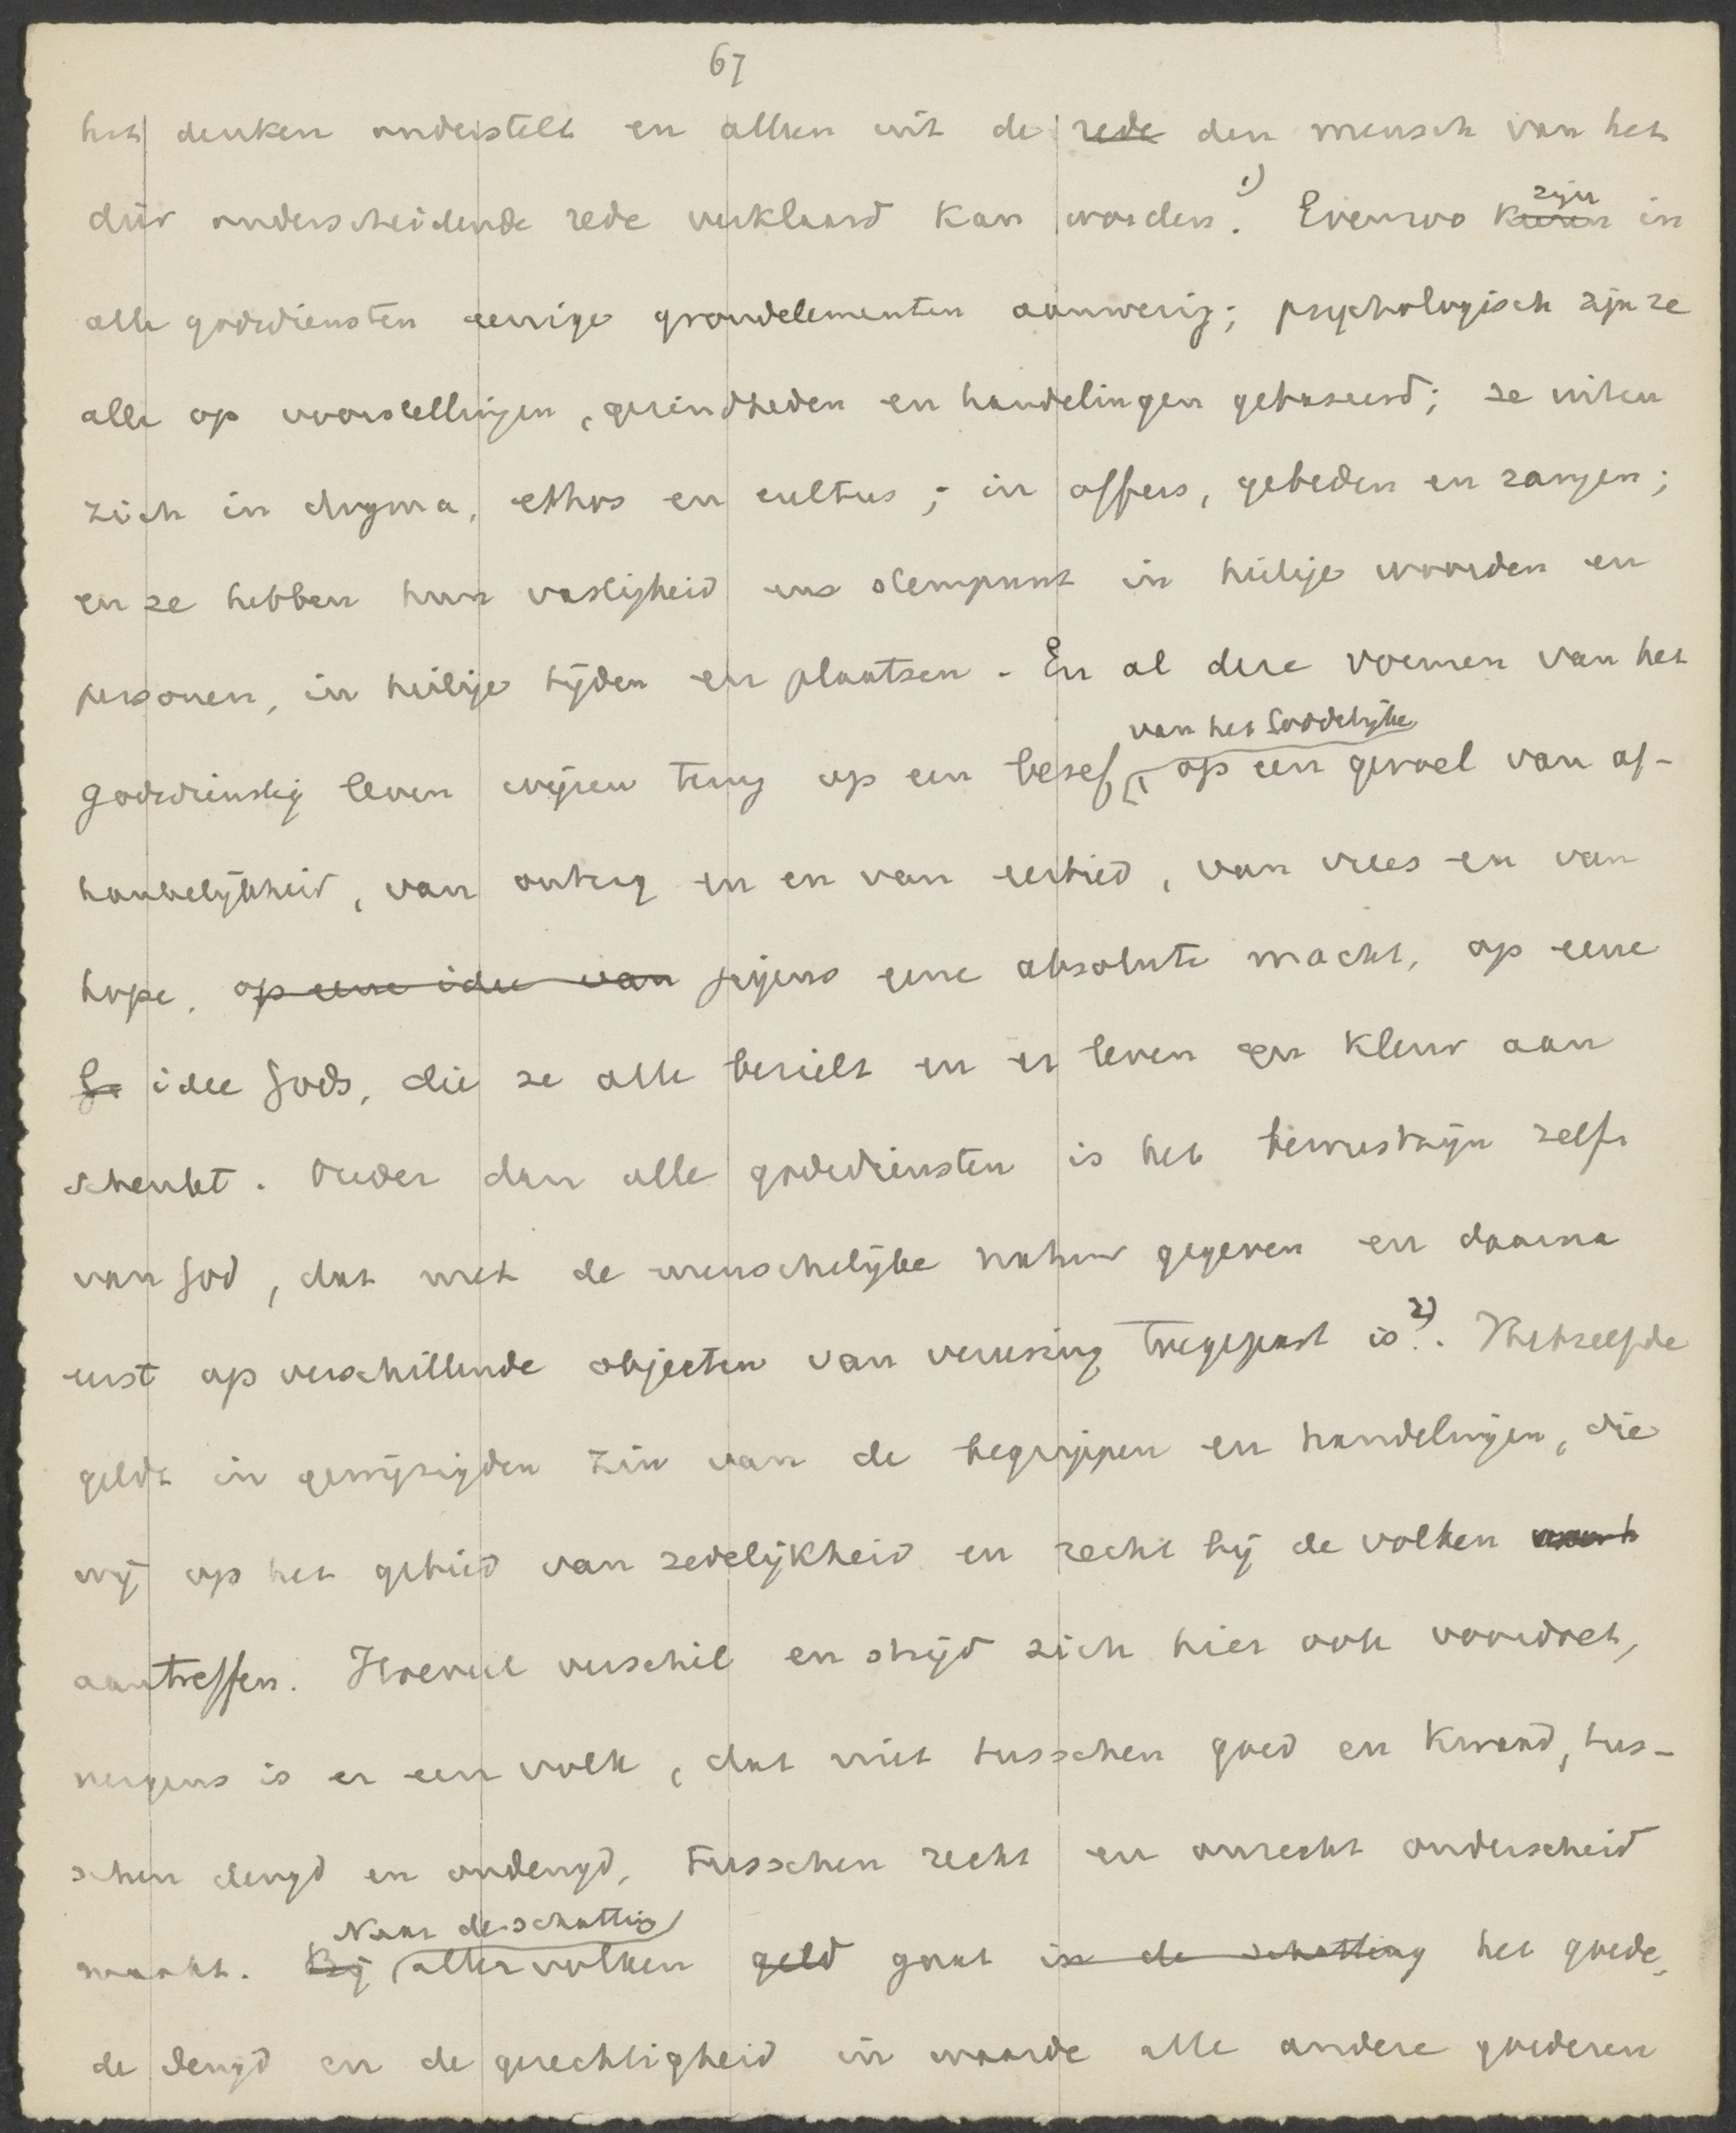 67
het denken onderstelt en alleen uit de rede den mensch van het
dier onderscheidende rede verklaard kan worden. 1) Evenzoo komen zijn in
alle godsdiensten eenige grondelementen aanwezig; psychologisch zijn ze
alle op voorstellingen, gezindheden en handelingen gebaseerd; ze uiten
zich in dogma, ethos en cultus; in offers, gebeden en zangen;
en ze hebben hun vastigheid en steunpunt in heilige woorden en
personen, in heilige tijden en plaatsen. En al deze vormen van het
van het Goddelijke
godsdienstig leven wijzen terug op een besef, op een gevoel van af-
hankelijkheid, van ontzag en en van eerbied, van vrees en van
hope, op eene idee van jegens eene absolute macht, op eene
Go idee Gods, die ze alle bezielt en er leven en kleur aan
schenkt. Ouder dan alle godsdiensten is het bewustzijn zelf
van God, dat met de menschelijke natuur gegeven en daarna
eerst op verschillende objecten van vereering toegepast is 2). Hetzelfde
geldt in gewijzigden zin van de begrippen en handelingen, die
wij op het gebied van zedelijkheid en recht bij de volken
aantreffen. Hoeveel verschil en strijd zich hier ook voordoet,
nergens is er een volk, dat niet tusschen goed en kwaad, tus-
schen deugd en ondeugd, tusschen recht en onrecht onderscheid
Naar de schatting
maakt. Bij aller volken geld gaat in de schatting het goede,
de deugd en de gerechtigheid in waarde alle andere goederen